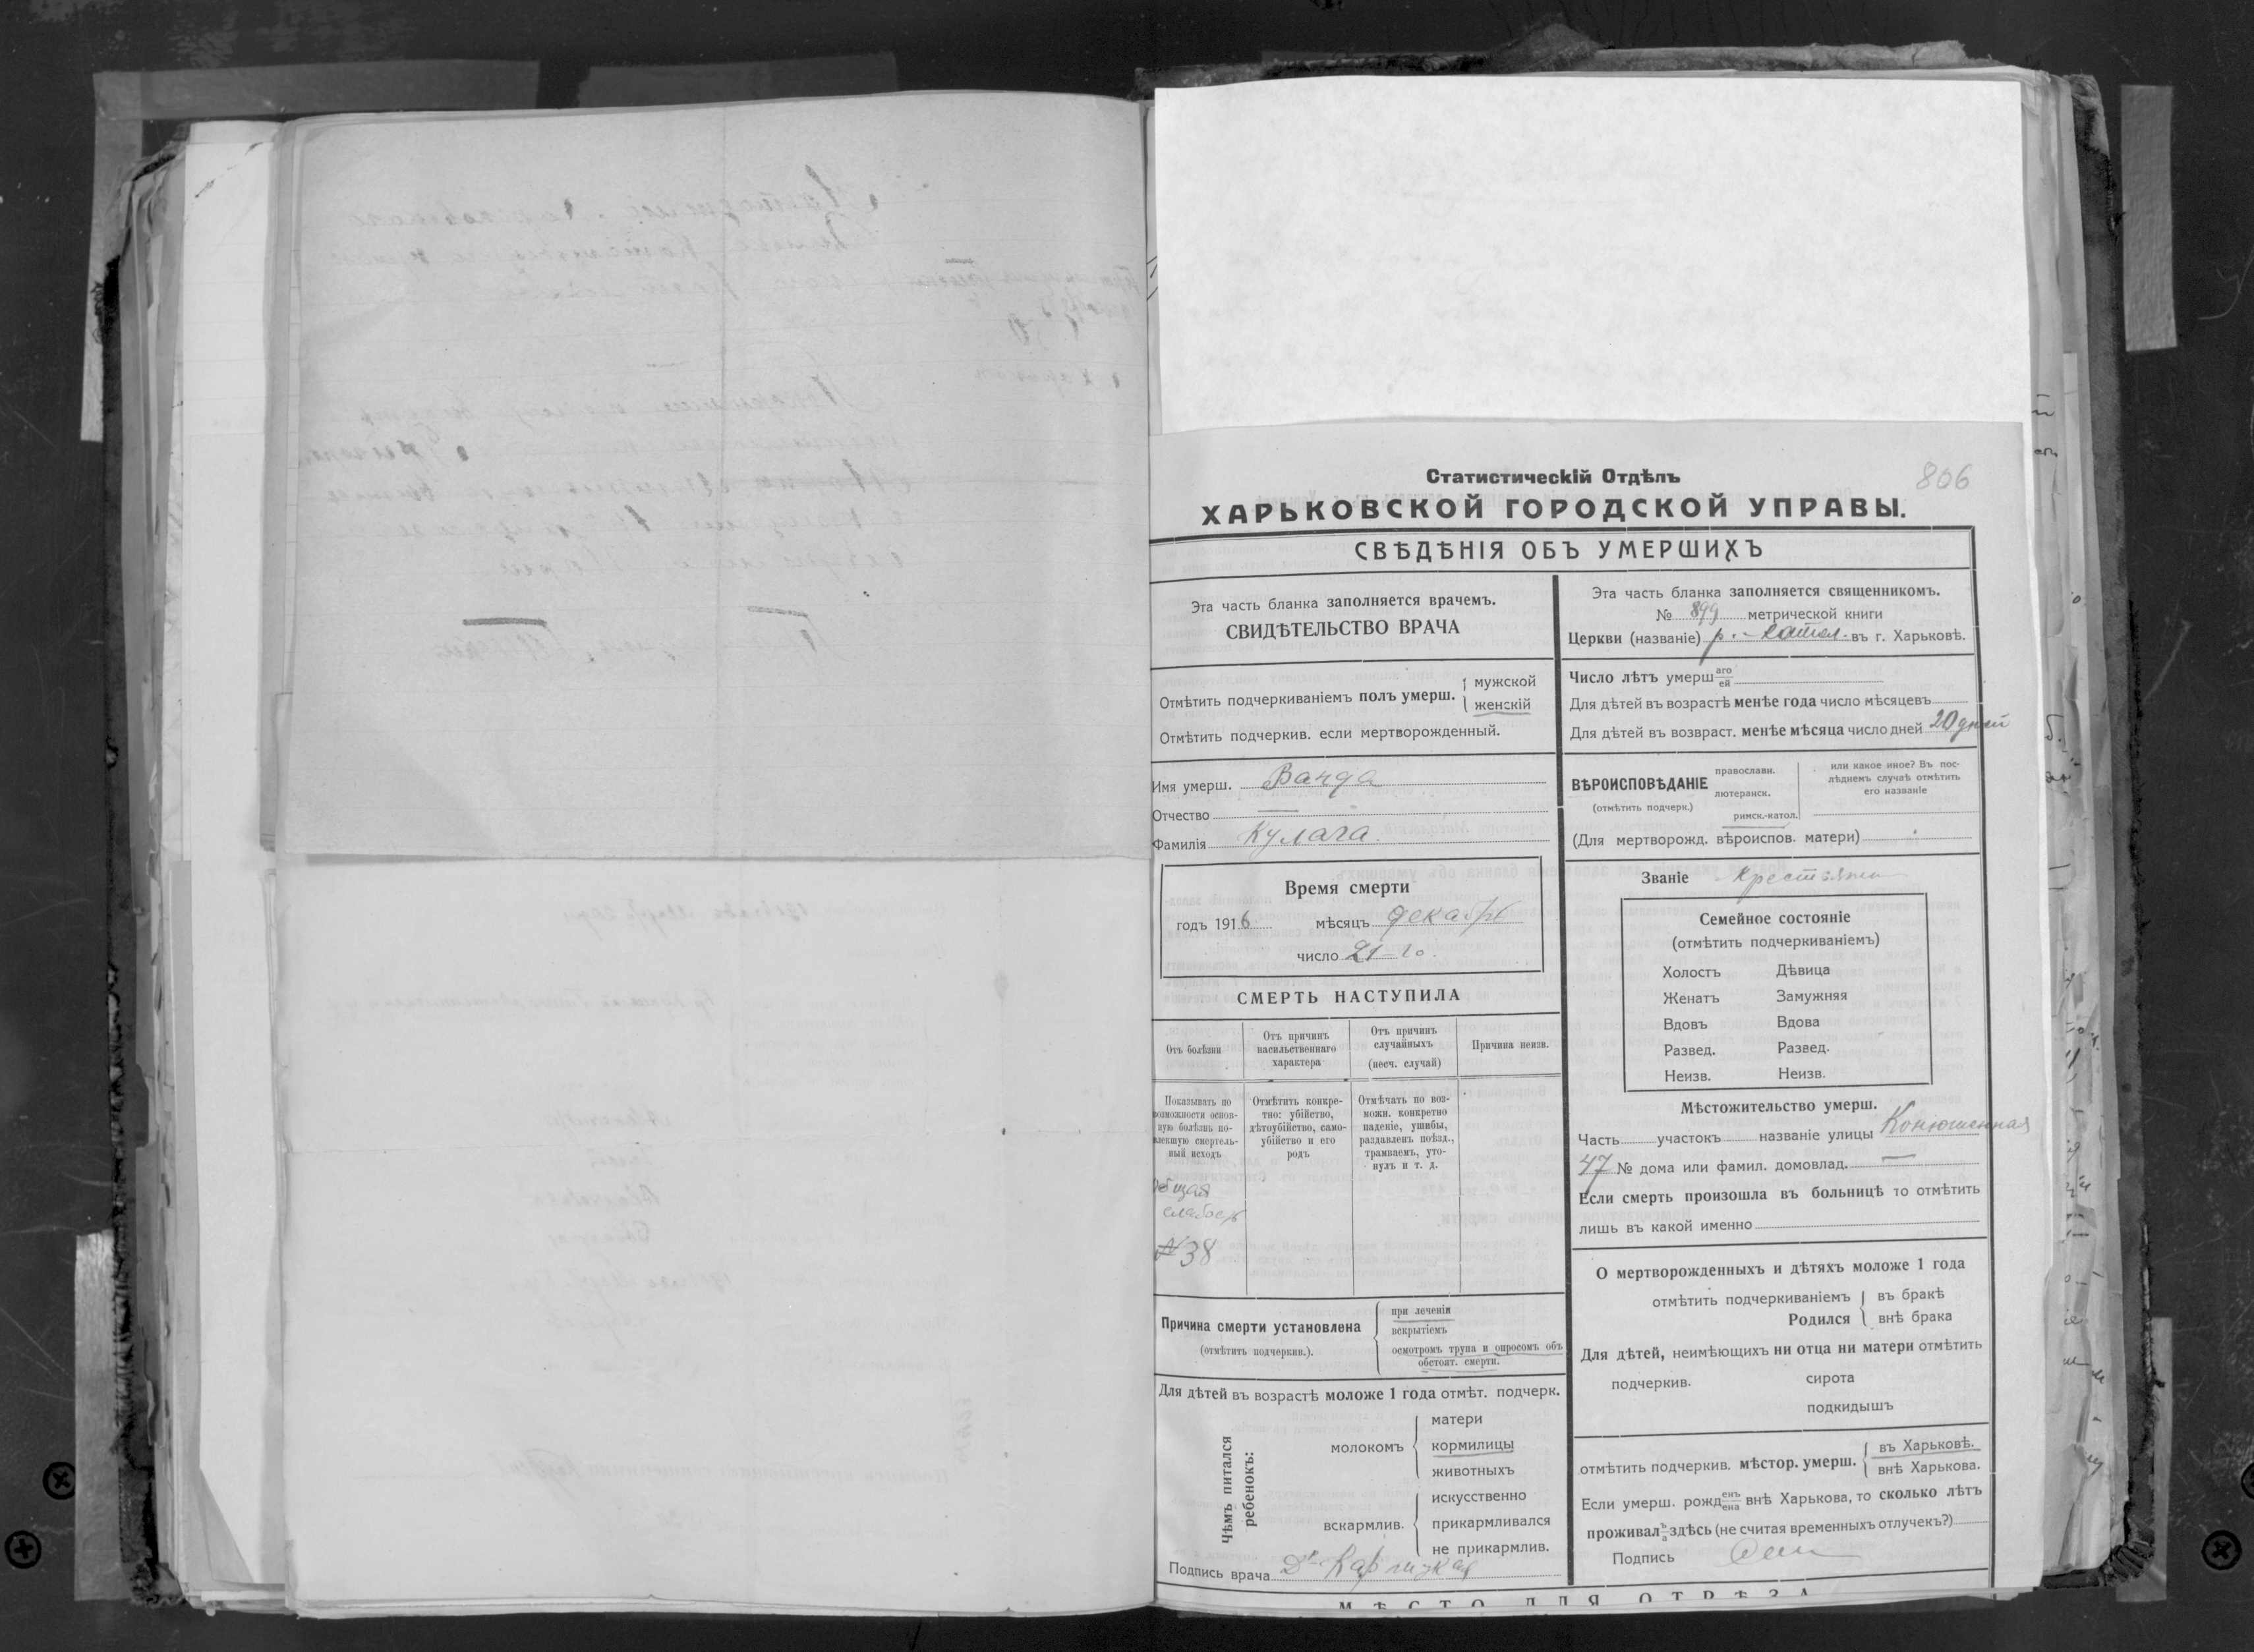 806
Статистическій Отдѣлъ
ХАРЬКОВСКОЙ ГОРОДСКОЙ УПРАВЫ.
СВѢДѢНІЯ ОБЪ УМЕРШИХЪ
Эта часть бланка заполняется врачемъ.
СВИДѢТЕЛЬСТВО ВРАЧА
Отмѣтить подчеркиваніемъ полъ умерш. мужской
женскій
Отмѣтить подчеркив. если мертворожденный.
Имя умерш. Ванда
Отчество —
Фамилія Кулага.
Время смерти
годъ 1916 мѣсяцъ декабрь
число 21-го
СМЕРТЬ НАСТУПИЛА
Отъ болѣзни
Отъ причинъ
насильственнаго
характера
Отъ причинъ
случайныхъ
(несч. случай)
Причина неизв.
Показывать по
возможности основ-
ную болѣзнь по-
влекшую смертель-
ный исходъ
Отмѣтить конкре-
тно: убійство,
дѣтоубійство, само-
убійство и его
родъ
Отмѣчать по воз-
можн. конкретно
паденіе, ушибы,
раздавленъ поѣзд.,
трамваемъ, уто-
нулъ и т. д.
Общая
слабость
№ 38
Причина смерти установлена
(отмѣтить подчеркив.).
при леченіи
вскрытіемъ
осмотромъ трупа и опросомъ объ
обстоят. смерти.
Для дѣтей въ возрастѣ моложе 1 года отмѣт. подчерк.
Чѣмъ питался
ребенокъ:
молокомъ
матери
кормилицы
животныхъ
вскармлив.
искусственно
прикармливался
не прикармлив.
Подпись врача
Эта часть бланка заполняется священникомъ.
№ 899 метрической книги
Церкви (названіе) р.-катол. въ г. Харьковѣ.
Число лѣтъ умерш аго
ей
Для дѣтей въ возрастѣ менѣе года число мѣсяцевъ
Для дѣтей въ возвраст. менѣе мѣсяца число дней 20 дней
ВѢРОИСПОВѢДАНІЕ
(отмѣтить подчерк.)
православн.
лютеранск.
римск.-катол.
или какое иное? Въ пос-
лѣднемъ случаѣ отмѣтить
его названіе
(Для мертворожд. вѣроиспов. матери)
Званіе
Семейное состояніе
(отмѣтить подчеркиваніемъ)
Холостъ Дѣвица
Женатъ Замужняя
Вдовъ Вдова
Развед. Развед.
Неизв. Неизв.
Мѣстожительство умерш.
Часть участокъ названіе улицы Конюшенная
47 № дома или фамил. домовлад. —
Если смерть произошла въ больницѣ то отмѣтить
лишь въ какой именно
О мертворожденныхъ и дѣтяхъ моложе 1 года
отмѣтить подчеркиваніемъ въ бракѣ
Родился внѣ брака
Для дѣтей, неимѣющихъ ни отца ни матери отмѣтить
подчеркив. сирота
подкидышъ
отмѣтить подчеркив. мѣстор. умерш. въ Харьковѣ.
внѣ Харькова.
Если умерш. рожд енъ
ена внѣ Харькова, то сколько лѣтъ
проживал ъ
а здѣсь (не считая временныхъ отлучекъ?)
Подпись
МѢСТО ДЛЯ ОТРѢЗА